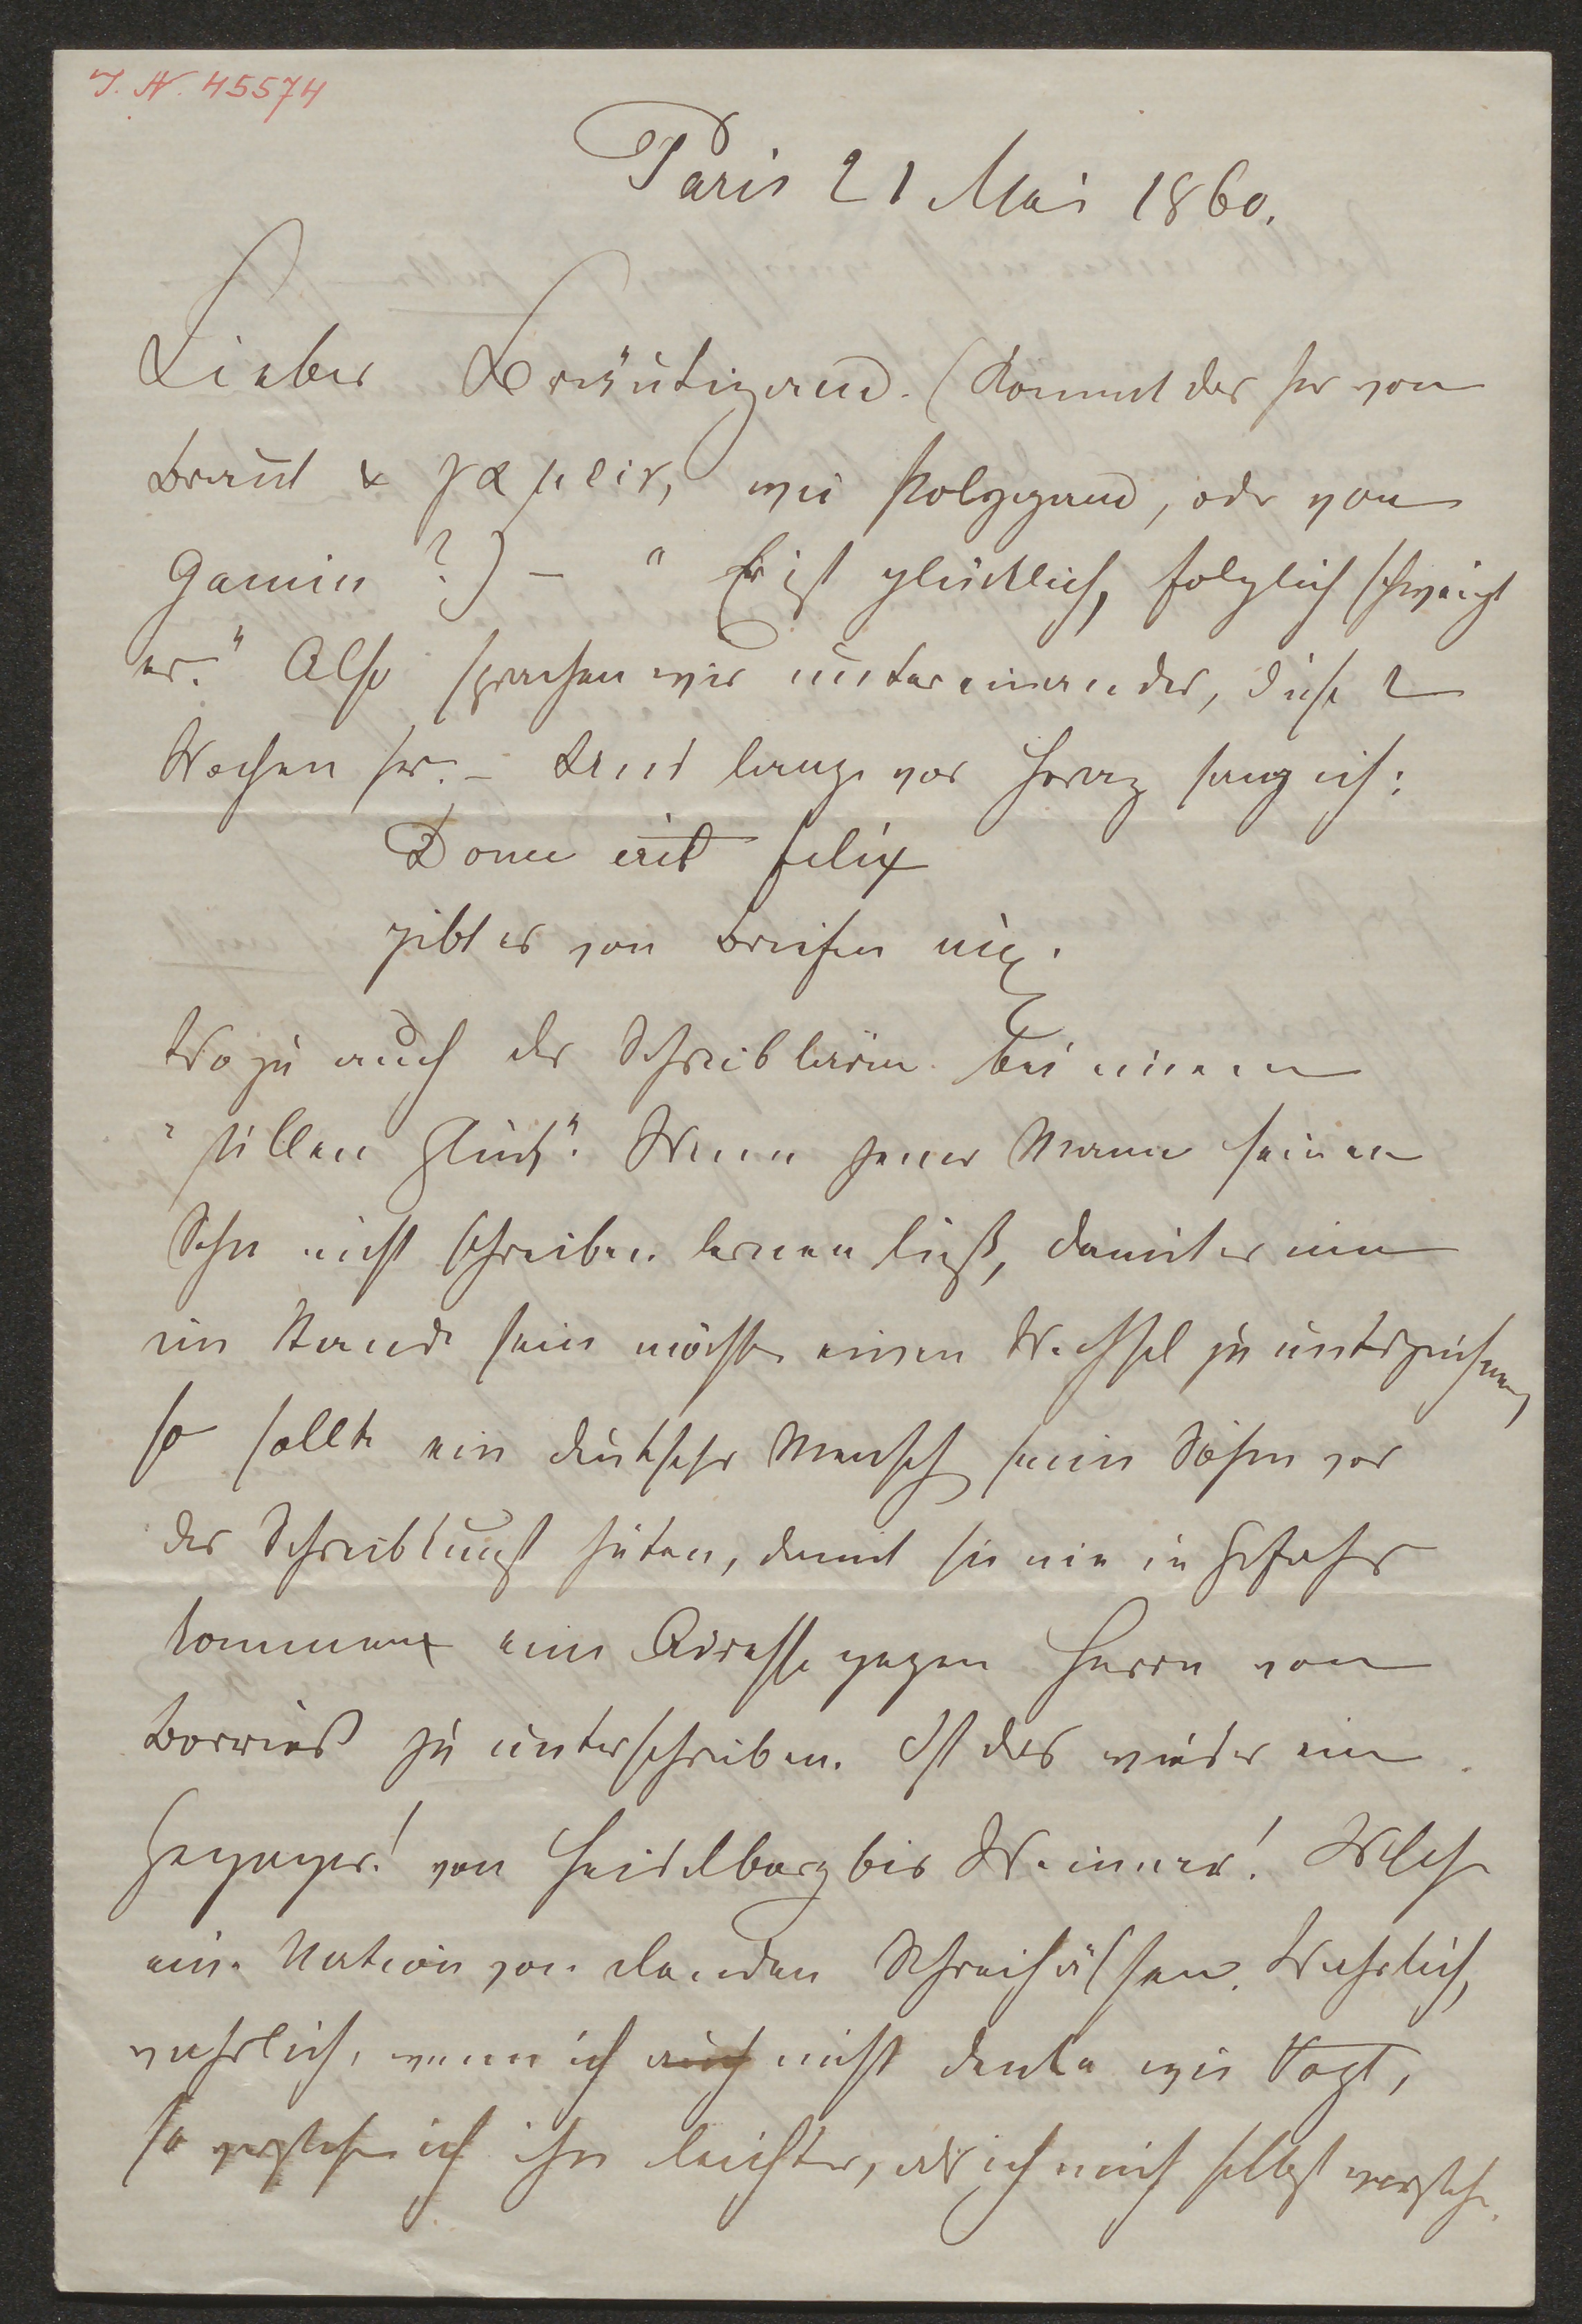 J. N. 45574
Paris 21 Mai 1860.
Lieber Bräutigam. (Kommt das her von
Braut & γαμειν, wie Polygam, oder von
Gamin?) – "Er ist glücklich, folglich schweigt
er." Also sprachen wir untereinander, diese 2
Wochen her. – Und lange vor Horaz sang ich:
Donec erit felix
gibt es von Briefen nix.
Wozu auch der Schreiblärm bei einem
"stillen Glück". Wenn jener Mann seinen
Sohn nicht schreiben lernen ließ, damit er nie
im Stande sein möchte einen Wechsel zu unterzeichnen,
so sollte ein deutscher Mensch seine Söhne vor
der Schreibkunst hüten, damit sie nie in Gefahr
kommen eine Adresse gegen Herrn von
Borries zu unterschreiben. Ist das wieder ein
Gegager! von Heidelberg bis Weimar! Welch
eine Nation von elenden Schreihälsen. Wahrlich,
wahrlich, wenn ich auch nicht denke wie Vogt,
so verstehe ich ihn leichter, als ich mich selbst verstehe.